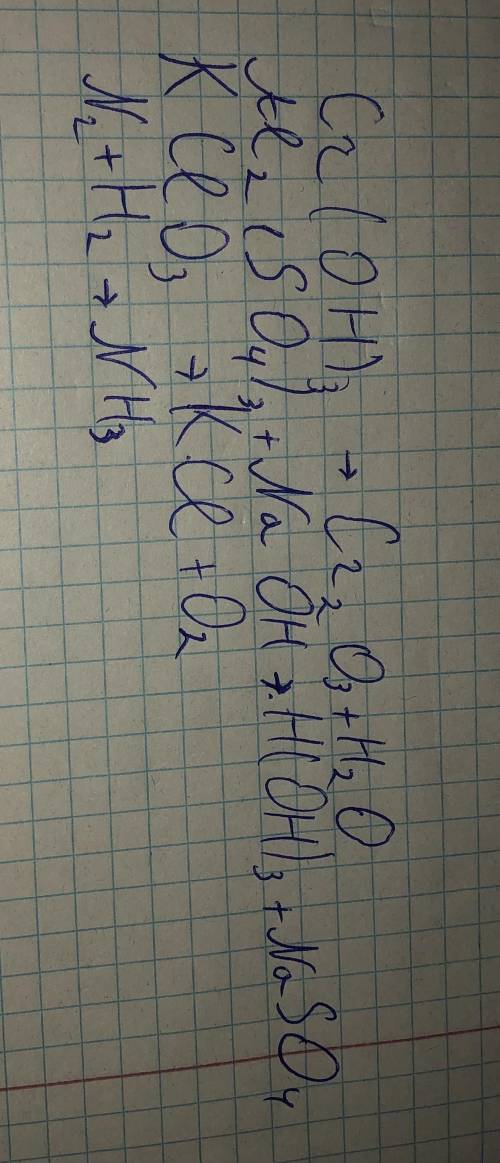 Cr(OH)₃ → Cr₂O₃ + H₂O
Al₂(SO₄)₃ + NaOH → H(OH)₃ + NaSO₄
KClO₃ → KCl + O₂
N₂ + H₂ → NH₃